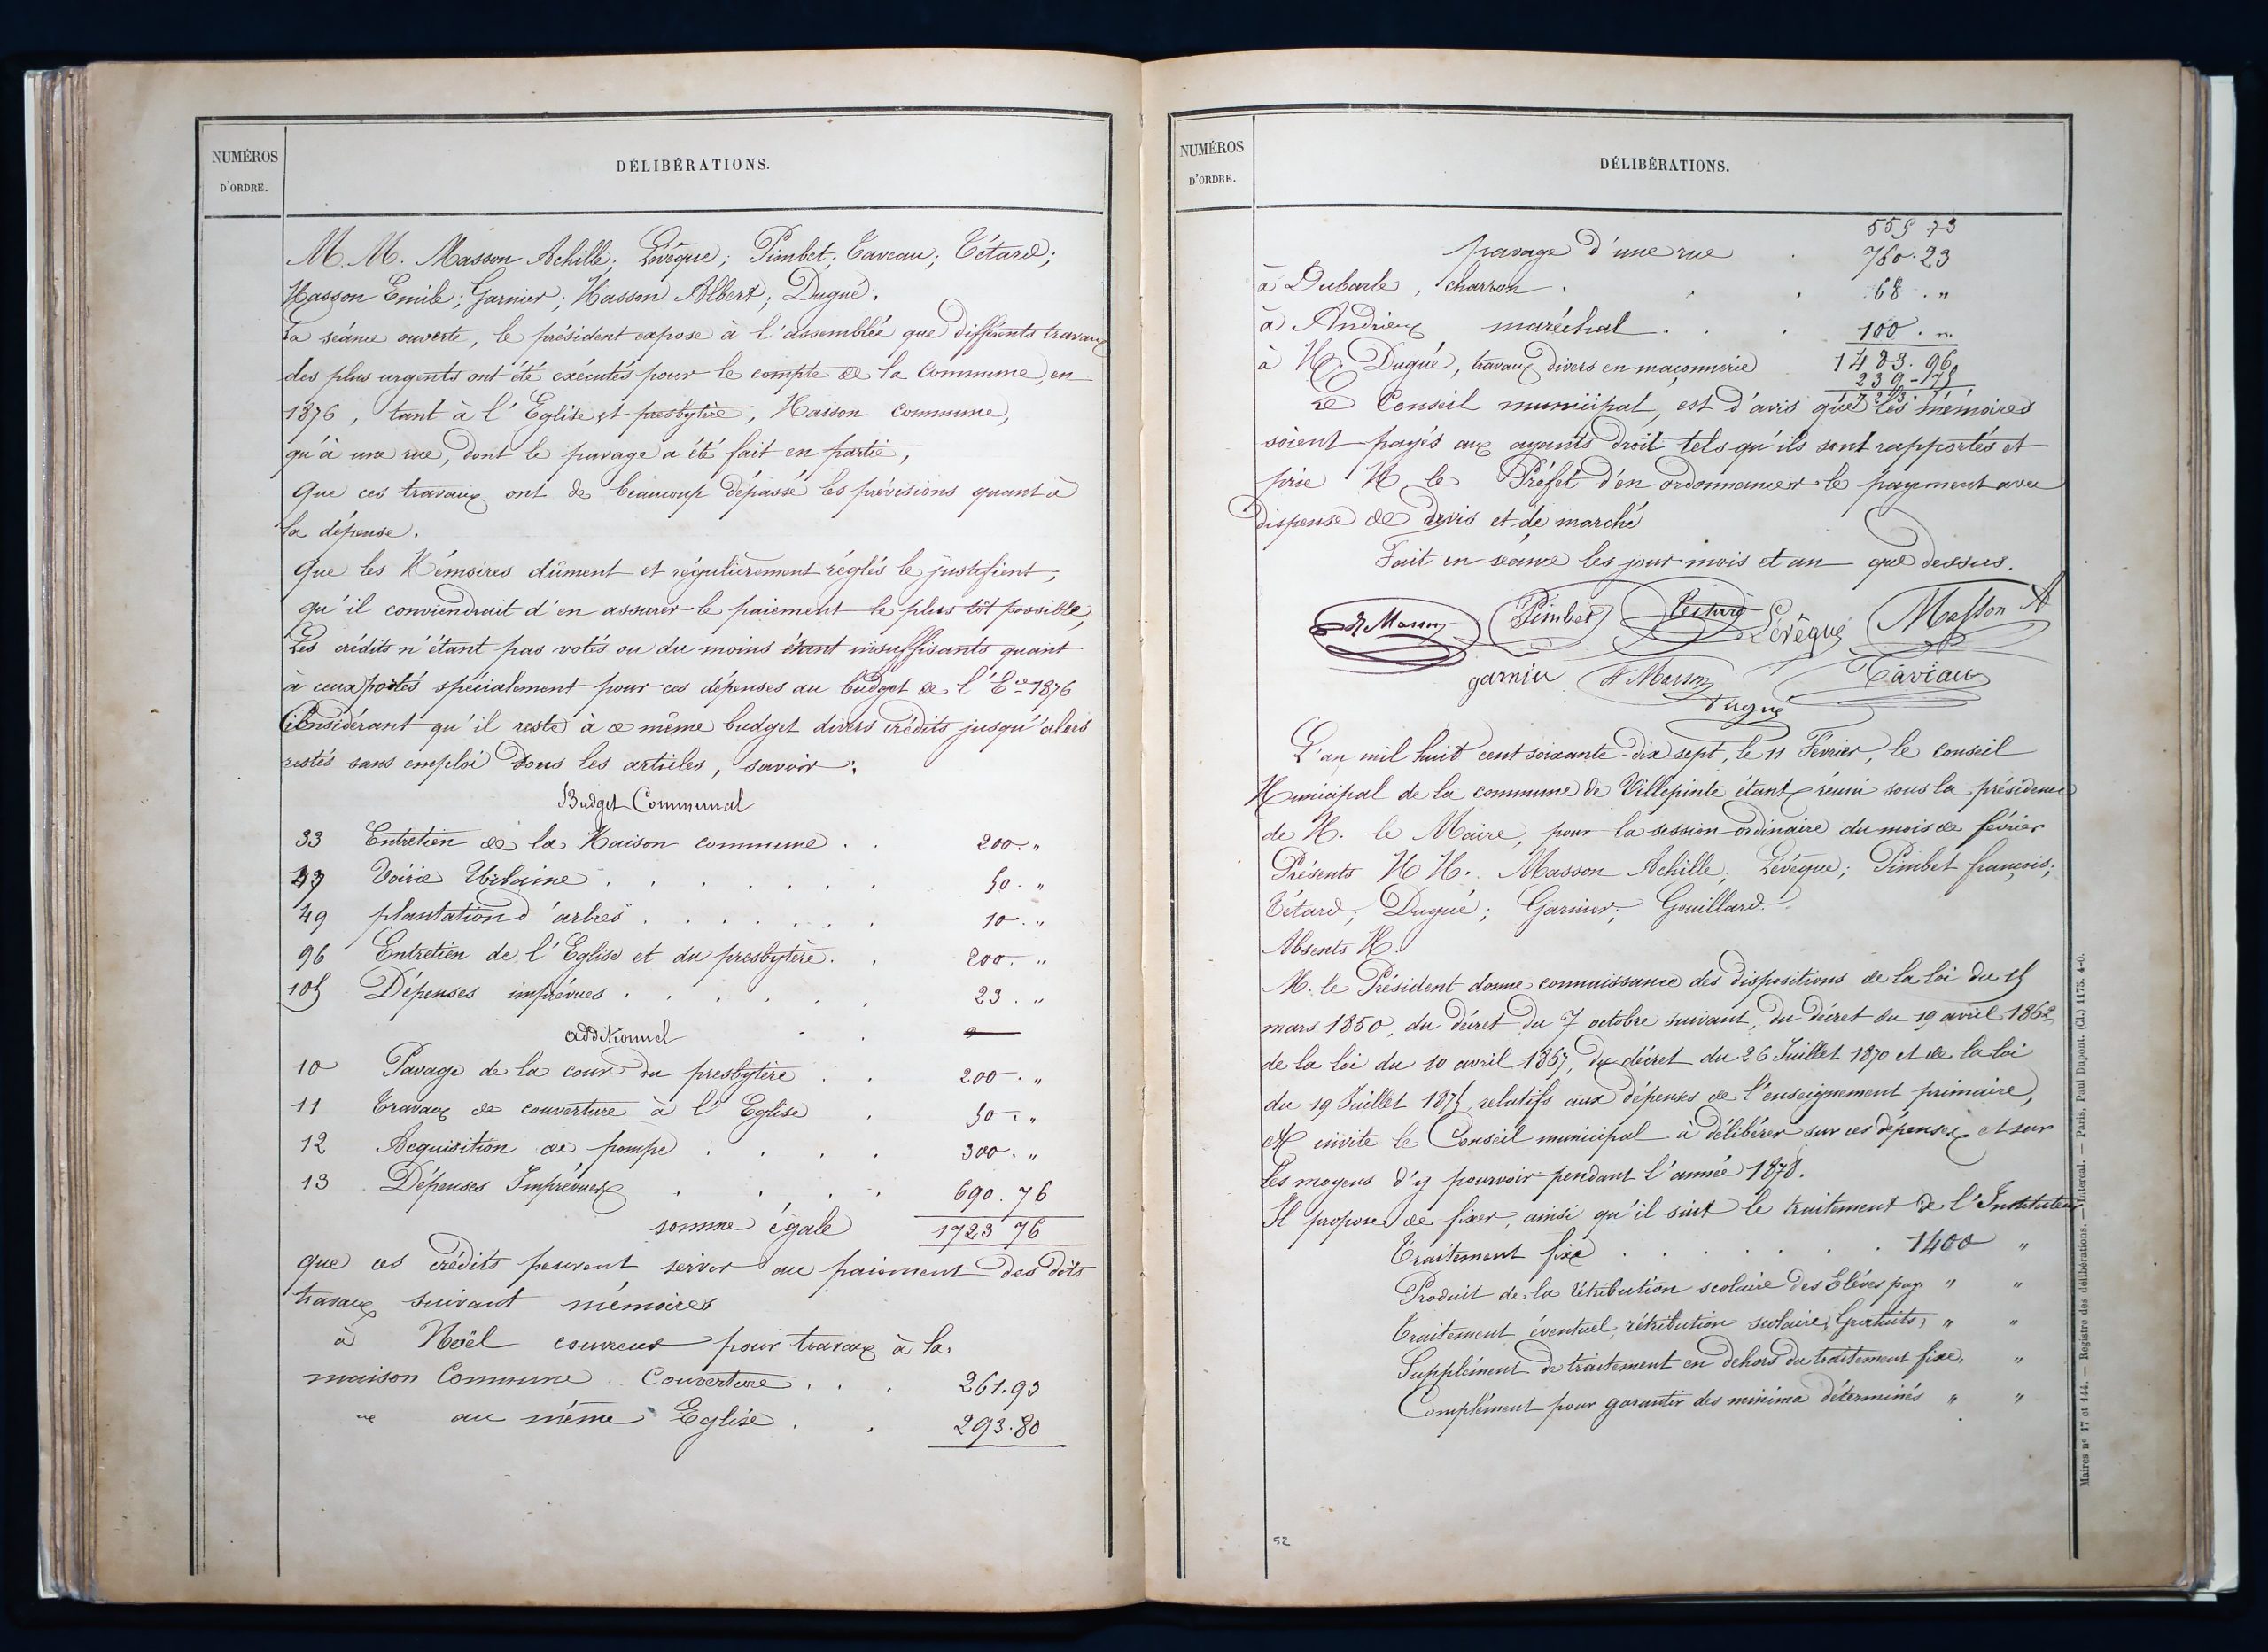 NUMÉROS
D'ORDRE.
DÉLIBÉRATIONS.
M. M. Masson Achille; Lévêque; Pimbet; Taveau; Tétard;
Masson Emile; Garnier; Masson Albert, Dugué.
La séance ouverte, le président expose à l'assemblée que différents travaux
des plus urgents ont été exécutés pour le compte de la Commune, en
1876, tant à l'Eglise et presbytère, Maison commune,
qu'à une rue, dont le pavage a été fait en partie,
Que ces travaux ont de beaucoup dépassé les prévisions quant à
la dépense.
Que les Mémoires dûment et régulièrement réglés le justifient,
qu'il conviendrait d'en assurer le paiement le plus tôt possible,
Les crédits n'étant pas votés ou du moins étant insuffisants quant
à ceux portés spécialement pour ces dépenses au budget de l'Ece 1876
Considérant qu'il reste à ce même budget divers crédits jusqu'alors
restés sans emploi dons les articles, savoir:
Budget Communal
33 Entretien de la Maison commune . . 200. "
43 Voirie Urbaine . . . . . . . 50. "
49 plantation d'arbres . . . . . . 10. "
96 Entretien de l'Eglise et du presbytère. . 200. "
105 Dépenses imprévues . . . . . . 23. "
additionnel
10 Pavage de la cour du presbytère . . 200. "
11 Travaux de couverture à l'Eglise . 50. "
12 Acquisition de pompe . . . . 300. "
13 Dépenses Imprévues . . . . 690.76
somme égale 1723 76
que ces crédits peuvent servir au paiement des dits
travaux suivant mémoires
à Noël couvreur pour travaux à la
maison Commune Couverture . . . 261.93
au même Eglise . . 293.80
NUMÉROS
D'ORDRE.
DÉLIBÉRATIONS.
555 73
pavage d'une rue . 760.23
à Dubarle, charron . . . 68. "
à Andrieux maréchal . . . 100. "
à M. Dugué, travaux divers en maçonnerie 1483.96
239-75
Le Conseil municipal, est d'avis que les mémoires
soient payés aux ayants droit tels qu'ils sont rapportés et
prie M. le Préfet d'en ordonnancer le payement avec
dispense de devis et de marché
Fait en séance les jour mois et an que dessus.
Masson Pimbet Tétard Lévêque Masson A
garnier A Masson Taveau
Dugué
L'an mil huit cent soixante-dix-sept, le 11 Février, le conseil
Municipal de la commune de Villepinte étant réuni sous la présidence
de M. le Maire, pour la session ordinaire du mois de février
Présents M M. Masson Achille; Lévêque; Pimbet françois;
Tétard; Dugué; Garnier; Gouillard.
Absents M.
M. le Président donne connaissance des dispositions de la loi du 15
mars 1850, du décret du 7 octobre suivant, du décret du 19 avril 1862,
de la loi du 10 avril 1867, du décret du 26 Juillet 1870 et de la loi
du 19 Juillet 1875, relatifs aux dépenses de l'enseignement primaire,
Et invite le Conseil municipal à délibérer sur ces dépenses et sur
les moyens d'y pourvoir pendant l'année 1878.
Il propose de fixer, ainsi qu'il suit le traitement de l'Instituteur
Traitement fixe . . . . . . . 1400 "
Produit de la rétribution scolaire des Elèves pay. " "
Traitement éventuel, rétribution scolaire, Gratuits, " "
Supplément de traitement en dehors du traitement fixe, "
Complément pour garantir des minima déterminés " "
52
Maires nº 17 et 144. — Registre des délibérations. — Intercal. — Paris, Paul Dupont. (Cl.) 1175. 4-0.